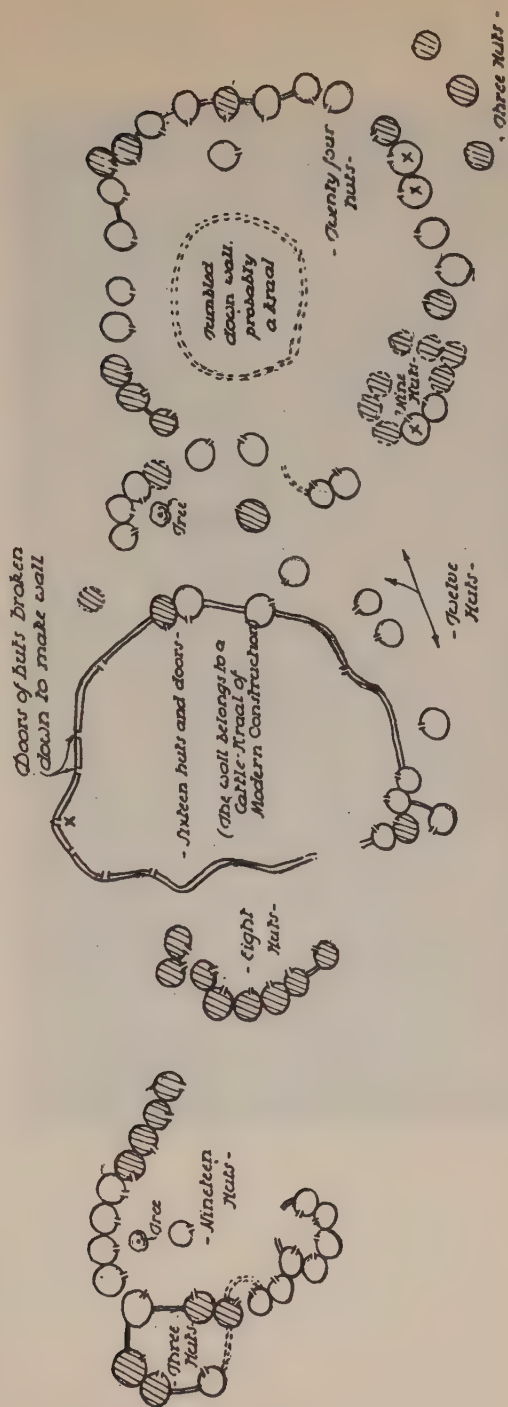 - Three
Huts -
Tree
- Nineteen
Huts -
- Eight
Huts -
Doors of huts broken
down to make wall
x
- Sixteen huts and doors -
(The wall belongs to a
Cattle-Kraal of
Modern Construction)
- Twelve
Huts -
Tree
Tumbled
down wall.
probably
a kraal
- Twenty four
huts -
Nine
Huts -
x
x
x
- Three Huts -